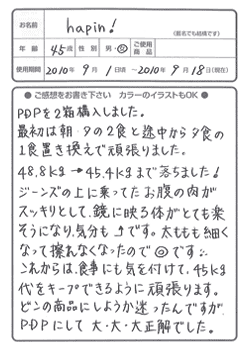 お名前
hapin!
(匿名でも結構です)
年齢 45歳 性別 男・女 ご使用商品
使用期間 2010年 9月 1日頃 ～ 2010年 9月 18日(現在)
● ご感想をお書き下さい カラーのイラストもOK ●
PDPを2箱購入しました。
最初は朝・夕の2食と途中から夕食の
1食置き換えで頑張りました。
48.8kg→45.4kgまで落ちました!
ジーンズの上に乗ってたお腹の肉が
スッキリとして、鏡に映る体がとても楽
そうになり、気分も↑です。太ももも細く
なって擦れなくなったので◎です。
これからは、食事にも気を付けて、45kg
代をキープできるように頑張ります。
どこの商品にしようか迷ったんですが、
PDPにして 大・大・大正解でした。